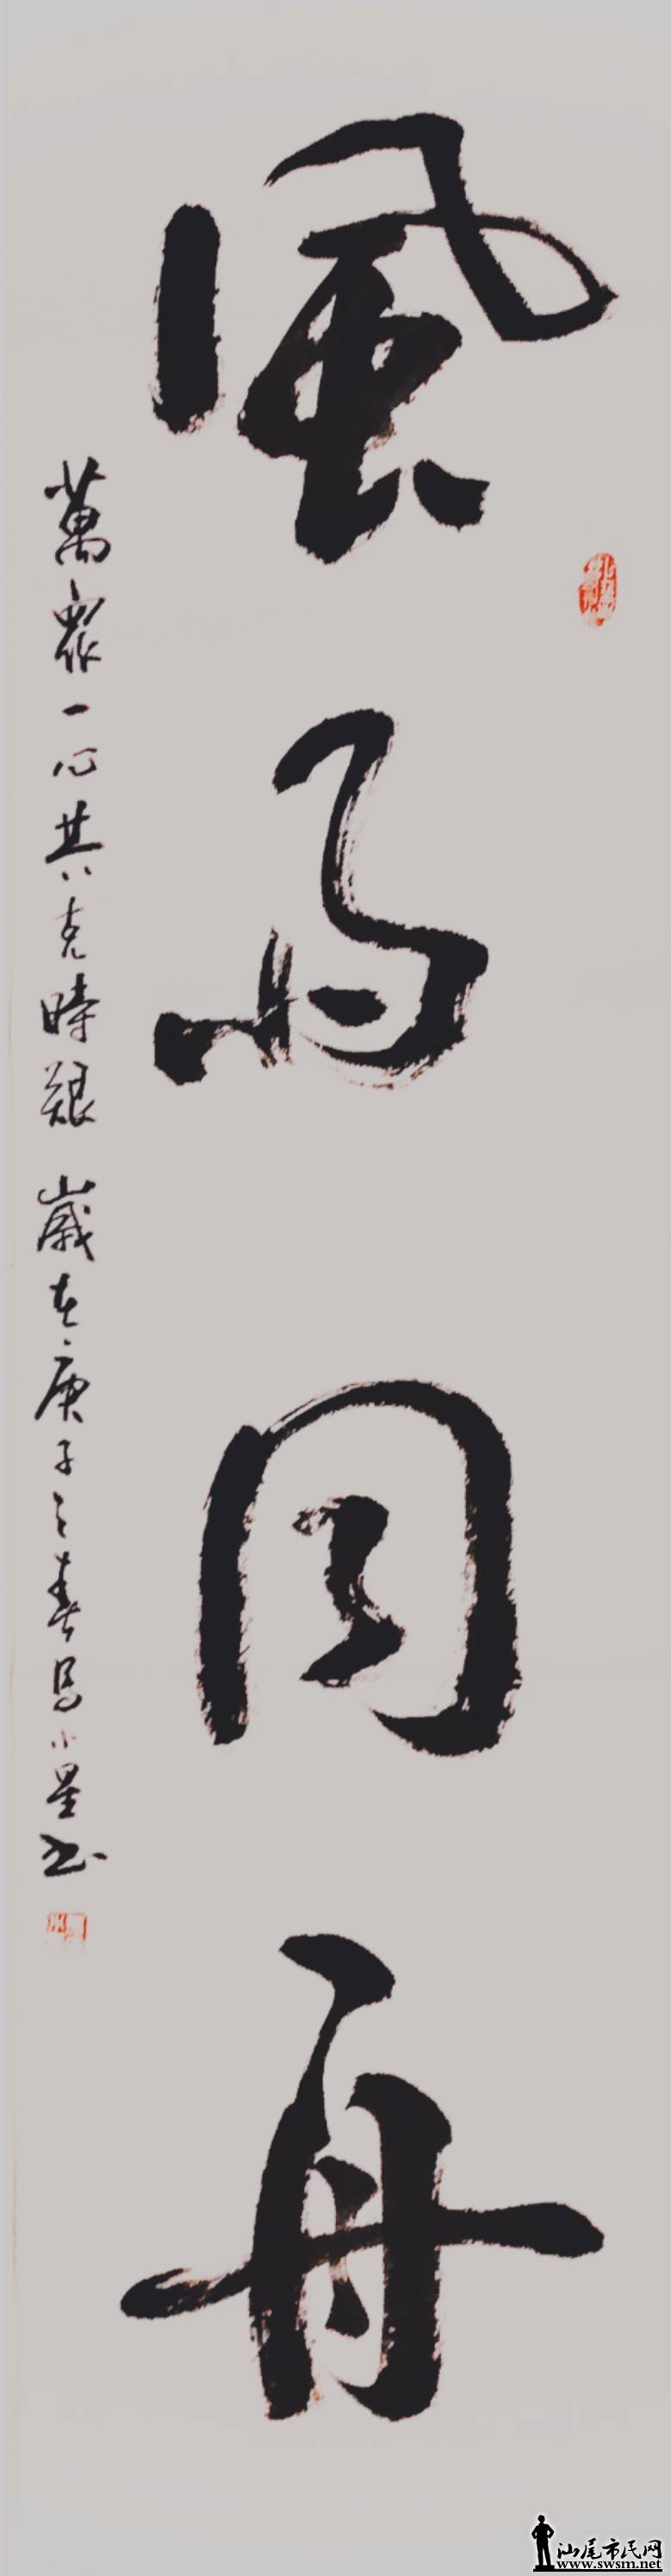 風雨同舟
萬眾一心共克時艱 歲在庚子之春馬小星书
汕尾市民网
www.swsm.net